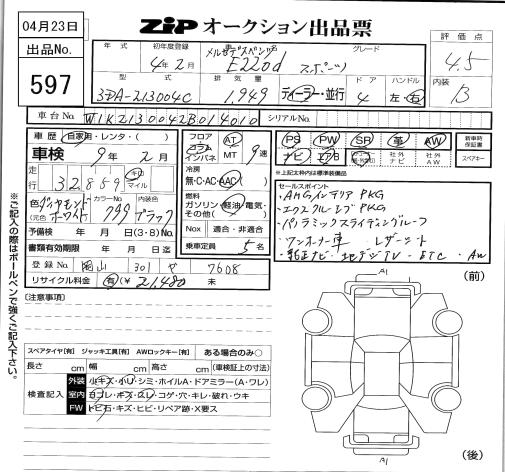 04月23日
ZiP オークション出品票
出品No.
597
評価点
4.5
内装
B
年式
初年度登録
4年2月
車名
メルセデスベンツ
E220d
グレード
スポーツ
型式
3DA-213004C
排気量
1,949
ディーラー・並行
ドア
4
ハンドル
左・右
車台No.
W1K2130042B014010
シリアルNo.
車歴 自家用・レンタ・( )
車検 9年2月
走行 32859 キロ マイル
色 ダイヤモンドホワイト
(元色 )
カラーNo.
799
内装色
ブラック
予備検 年 月 日(3・8)No.
書類有効期限 年 月 日迄
登録No. 岡山 301 や 7608
リサイクル料金 有(¥ 21,480 未
フロア
コラム
インパネ
AT
MT
9速
冷房
無・C・AC・AAC
燃料
ガソリン・軽油・電気・
その他( )
Nox 適合・非適合
乗車定員 5名
PS PW SR 革 AW
ナビ エアB 社外ナビ 社外AW
新車時保証書
スペアキー
※上記太枠内は標準装備品
セールスポイント
・AMGインテリアPKG
・エクスクルーシブPKG
・パノラミックスライディングルーフ
・ワンオーナー車 レザーシート
・純正ナビ・地デジTV・ETC・AW
※ご記入の際はボールペンで強くご記入下さい。
(注意事項)
A1
(前)
スペアタイヤ[有] ジャッキ工具[有] AWロックキー[有] ある場合のみ○
長さ cm 幅 cm 高さ cm (車検証上の寸法)
検査記入
外装 小キズ・小リ・シミ・ホイルA・ドアミラー(A・ワレ)
室内 ヨゴレ・キズ・スレ・コゲ・穴・キレ・破れ・ウキ
FW トビ石・キズ・ヒビ・リペア跡・X要ス
A1
(後)